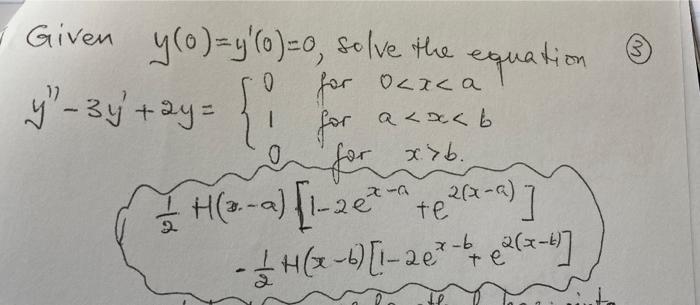 Given y(0)=y'(0)=0, solve the equation ③
y'' - 3y' + 2y = { 0 for 0<x<a
1 for a<x<b
0 for x>b.
1/2 H(x-a) [1-2e^{x-a} + e^{2(x-a)}]
- 1/2 H(x-b) [1-2e^{x-b} + e^{2(x-b)}]